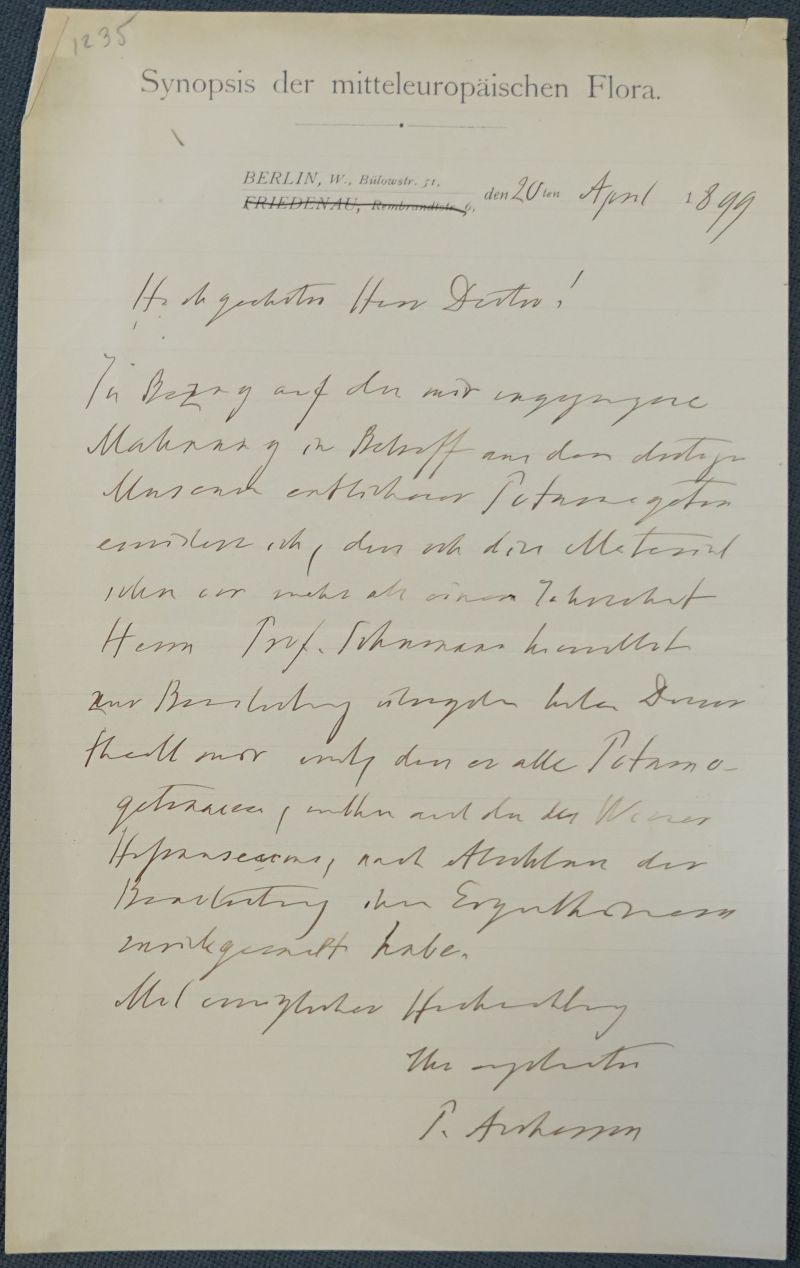 1235
Synopsis der mitteleuropäischen Flora.
BERLIN, W., Bülowstr. 51,
FRIEDENAU, Rembrandtstr. 6,
den 20ten April 1899
Hochgeehrter Herr Doctor!
In Bezug auf die mir zugegangene
Mahnung in Betreff aus dem dortigen
Museum entliehener Potamogeton
erwidere ich, dass ich dies Material
schon vor mehr als einem Jahre
Herrn Prof. Schumann
zur Bearbeitung übergeben habe. Dieser
theilt mir mit, dass er alle Potamo-
getonaceen, auch die des Wiener
Hofmuseums, nach Abschluss der
Bearbeitung ihren Eigenthümern
zurückgesandt habe.
Mit vorzüglicher Hochachtung
Ihr ergebenster
P. Ascherson